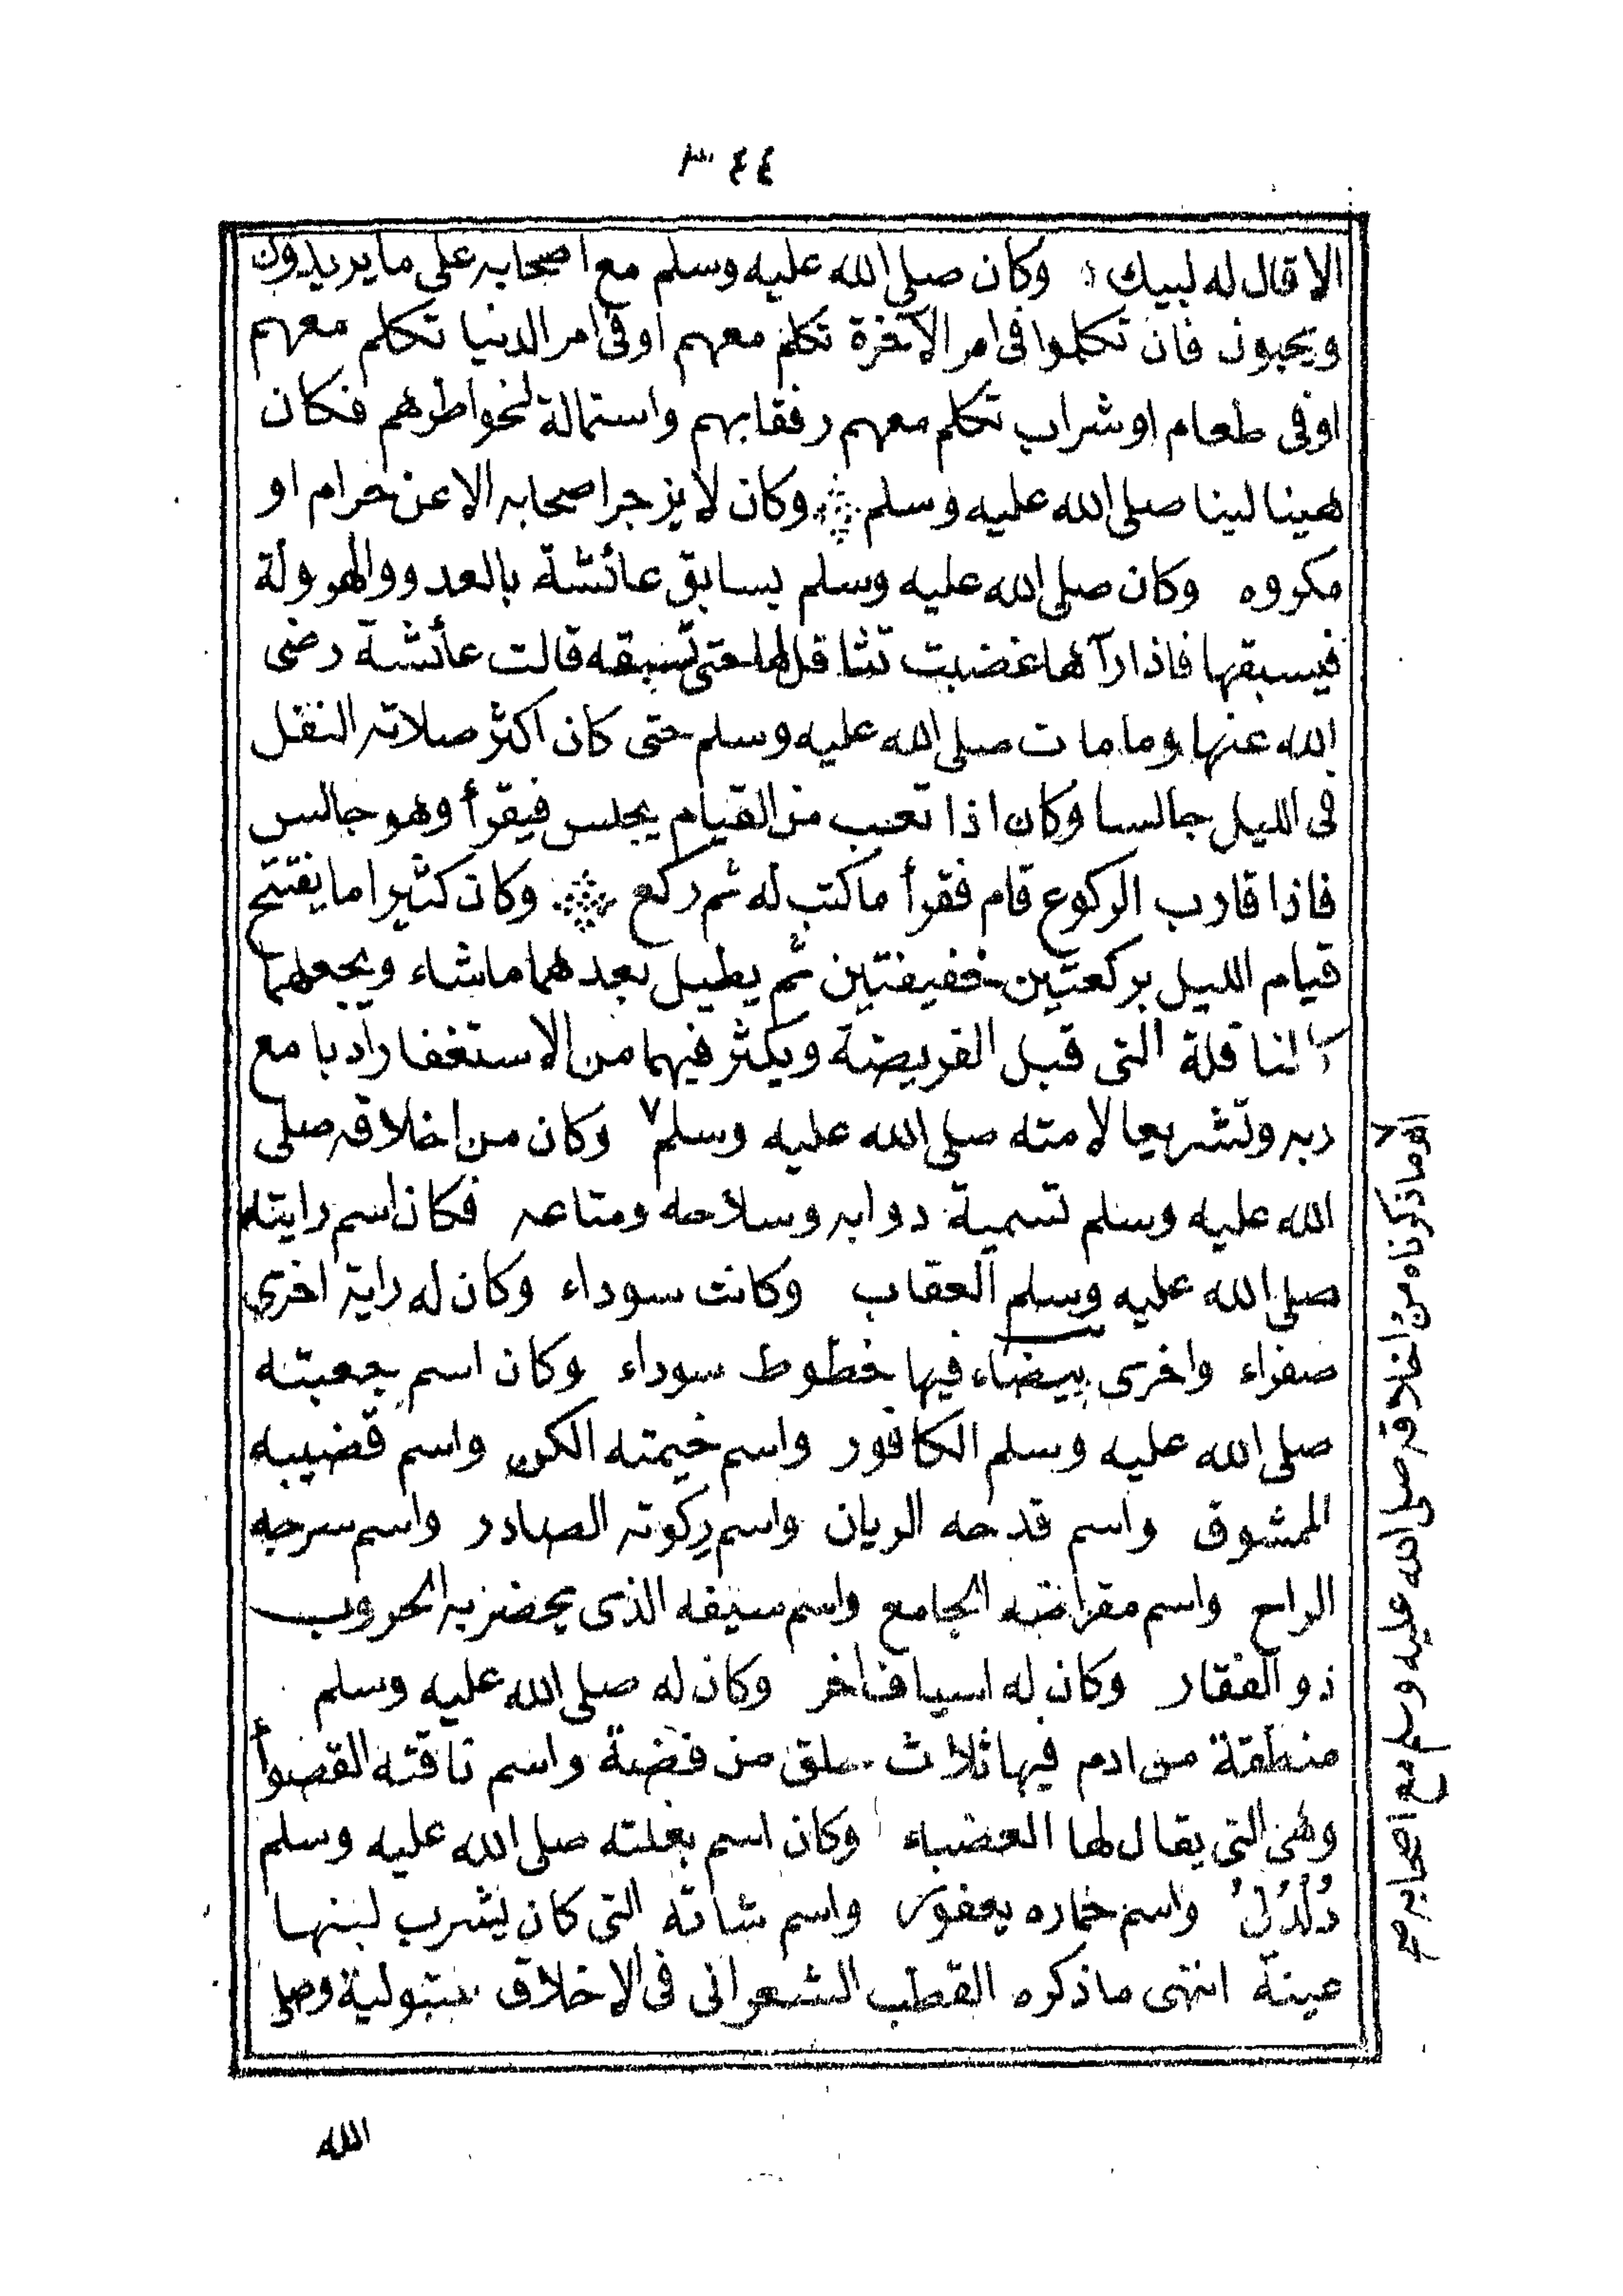 ٣٤٤
الا قال له لبيك وكان صلى الله عليه وسلم مع اصحابه على ما يريدون
ويحبون فان تكلموا فى امر الآخرة تكلم معهم او فى امر الدنيا تكلم معهم
او فى طعام او شراب تكلم معهم رفقا بهم واستمالة لخواطرهم فكان
هينا لينا صلى الله عليه وسلم وكان لا يزجر اصحابه الا عن حرام او
مكروه وكان صلى الله عليه وسلم يسابق عائشة بالعدو والهرولة
فيسبقها فاذا رآها غضبت تثاقل لها حتى تسبقه قالت عائشة رضى
الله عنها وما مات صلى الله عليه وسلم حتى كان اكثر صلاته النفل
فى الليل جالسا وكان اذا تعب من القيام يجلس فيقرأ وهو جالس
فاذا قارب الركوع قام فقرأ ما كتب له ثم ركع وكان كثيرا ما يفتتح
قيام الليل بركعتين خفيفتين ثم يطيل بعدهما ما شاء ويجعلهما
كالنافلة التى قبل الفريضة ويكثر فيهما من الاستغفار أدبا مع
ربه وتشريعا لامته صلى الله عليه وسلم ٧ وكان من اخلاقه صلى
الله عليه وسلم تسمية دوابه وسلاحه ومتاعه فكان اسم رايته
صلى الله عليه وسلم العقاب وكانت سوداء وكان له راية اخرى
صفراء واخرى بيضاء فيها خطوط سوداء وكان اسم جعبته
صلى الله عليه وسلم الكافور واسم خيمته الكن واسم قضيبه
الممشوق واسم قدحه الريان واسم رِكوته الصادر واسم سرجه
الراح واسم مقراضه الجامع واسم سيفه الذى يحضر به الحروب
ذو الفقار وكان له اسياف اخر وكان له صلى الله عليه وسلم
منطقة من ادم فيها ثلاث حلق من فضة واسم ناقته القصوأ
وهى التى يقال لها العضباء وكان اسم بغلته صلى الله عليه وسلم
دُلْدُلُ واسم حماره يعفور واسم شاته التى كان يشرب لبنها
عينة انتهى ما ذكره القطب الشعرانى فى الاخلاق المتبولية وصلى
الله
ما ذكرناه من اخلاقه صلى الله عليه وسلم مع اصحابه